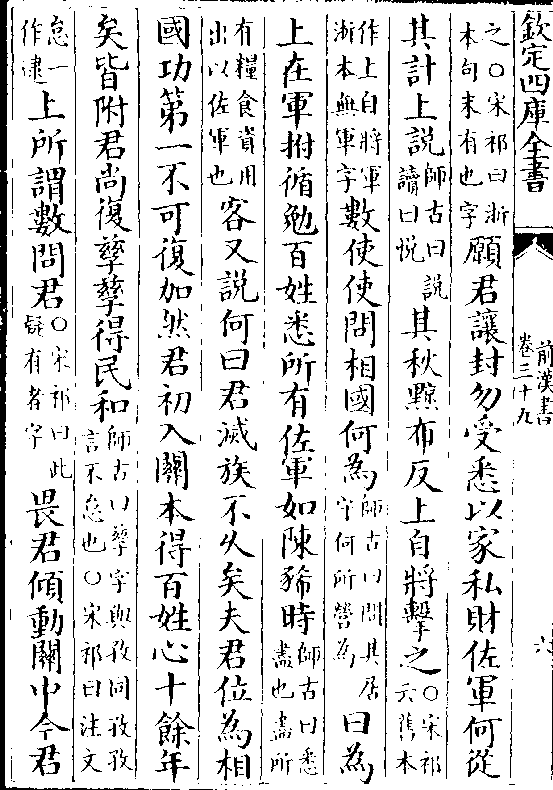 欽定四庫全書
前漢書
卷三十九
六
之〇宋祁曰浙本句末有也字願君讓封勿受悉以家私財佐軍何從
其計上説師古曰説讀曰悦其秋黥布反上自將擊之〇宋祁云舊本
作上自將軍浙本無軍字數使使問相國何為師古曰問其居守何所營為曰為
上在軍拊循勉百姓悉所有佐軍如陳豨時師古曰悉盡也盡所
有糧食資用出以佐軍也客又説何曰君滅族不久矣夫君位為相
國功第一不可復加然君初入關本得百姓心十餘年
矣皆附君尚復孳孳得民和師古曰孳字與孜同孜孜言不怠也〇宋祁曰注文
怠一作逮上所謂數問君〇宋祁曰此疑有者字畏君傾動關中今君